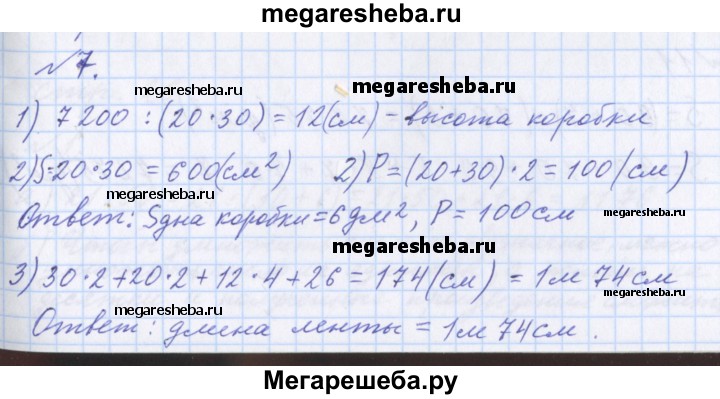 megaresheba.ru
№7.
megaresheba.ru megaresheba.ru
1) 7200 : (20·30) = 12(см) - высота коробки
megaresheba.ru
2) S=20·30 = 600(см²) 2) P=(20+30)·2=100(см)
megaresheba.ru
Ответ: Sдна коробки=6дм², P=100см
3) 30·2+20·2+12·4+26=174(см) = 1м 74см
megaresheba.ru megaresheba.ru
Ответ: длина ленты = 1м 74см.
Мегарешеба.ру